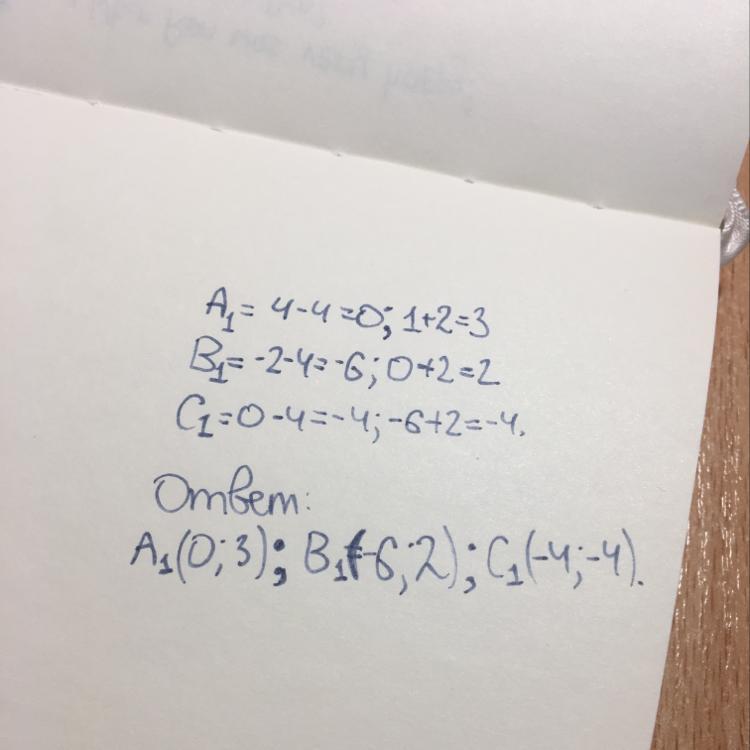 A₁ = 4-4=0; 1+2=3
B₁=-2-4=-6; 0+2=2
C₁=0-4=-4; -6+2=-4.
Ответ:
A₁(0; 3); B₁(-6; 2); C₁(-4; -4).